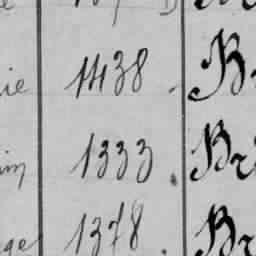 ie 1438. Br
im 1333. Br
ge 1378. Br